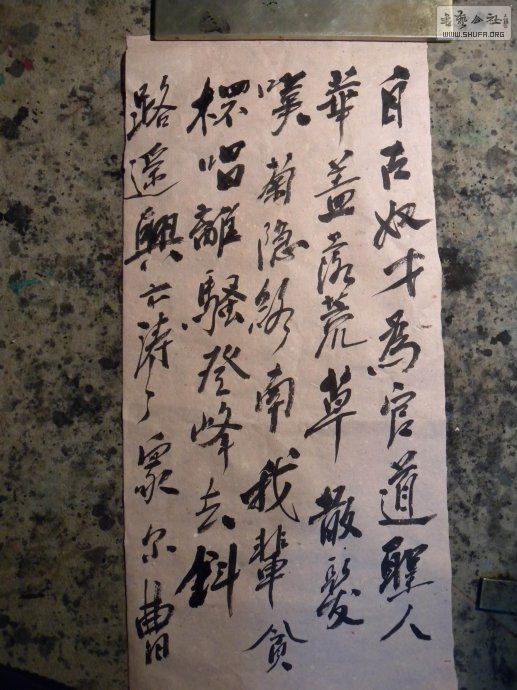 書藝公社
WWW.SHUFA.ORG
自古奴才為官道聖人
華蓋落荒草散髮
菊隐終南我輩貧
唱離騷登峰去斜
路遥興亦濤々尔曹